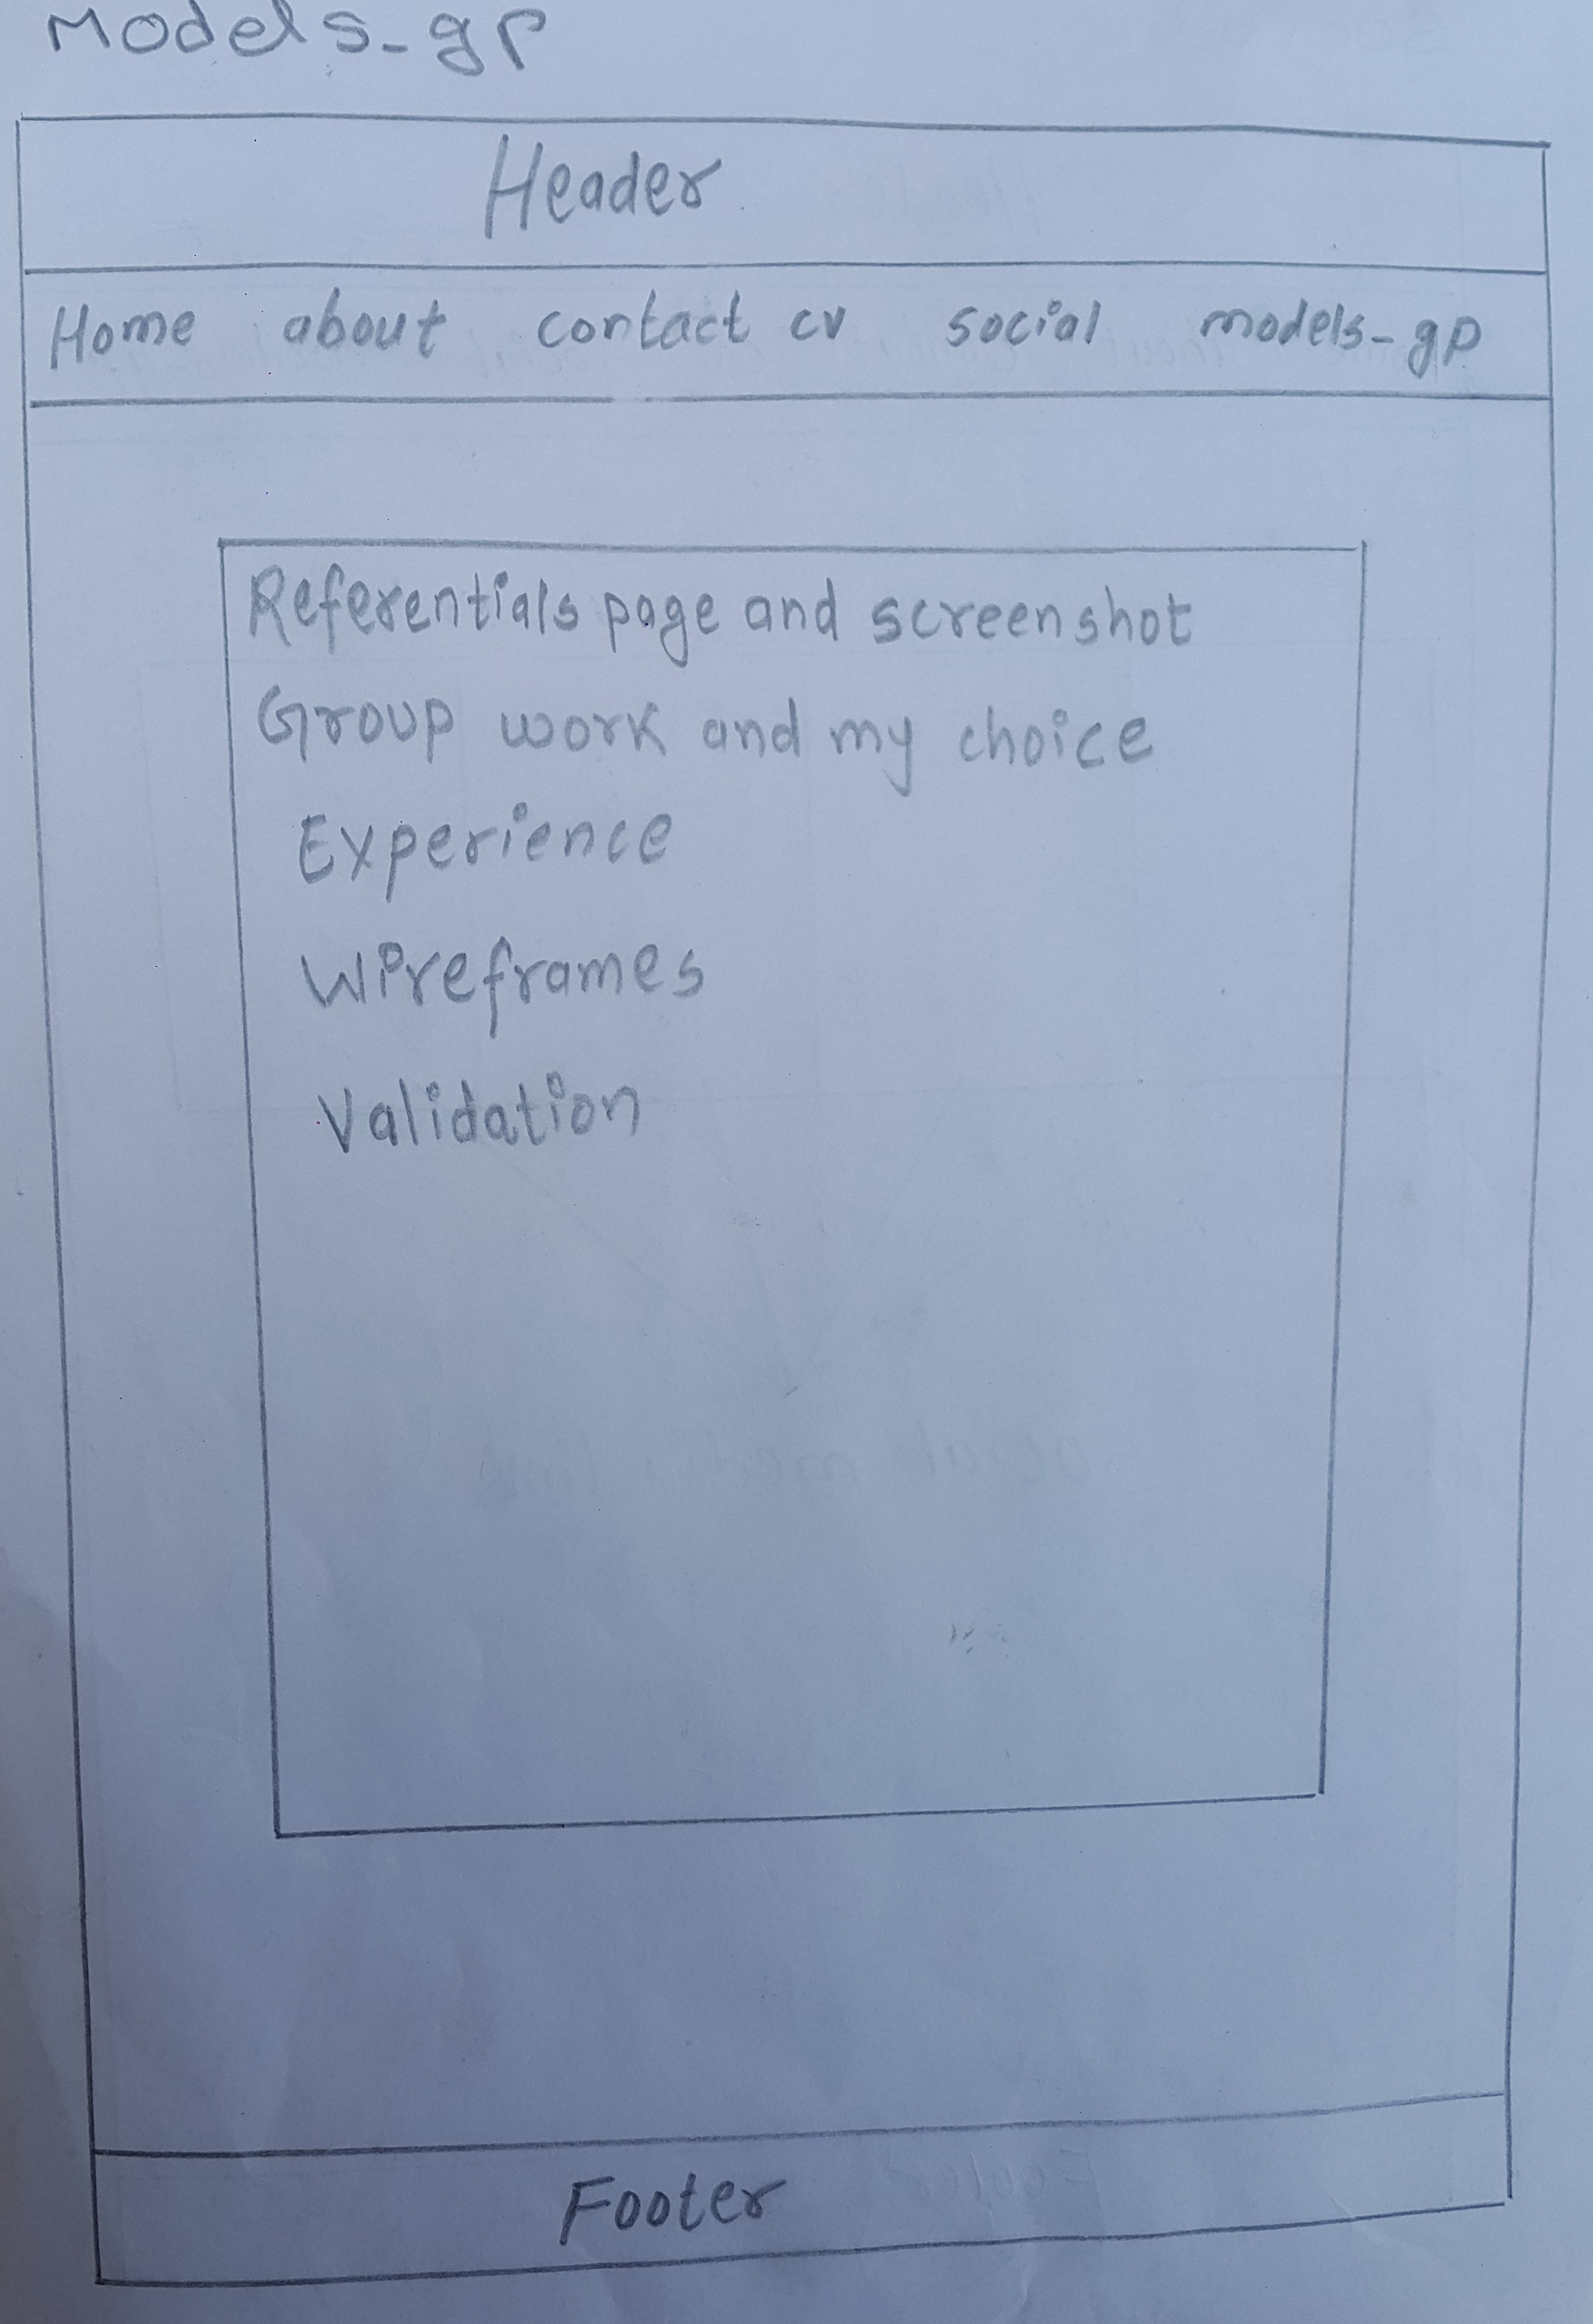 Models-gp
Header
Home about contact cv social models-gp
Referentials page and screenshot
Group work and my choice
Experience
Wireframes
Validation
Footer